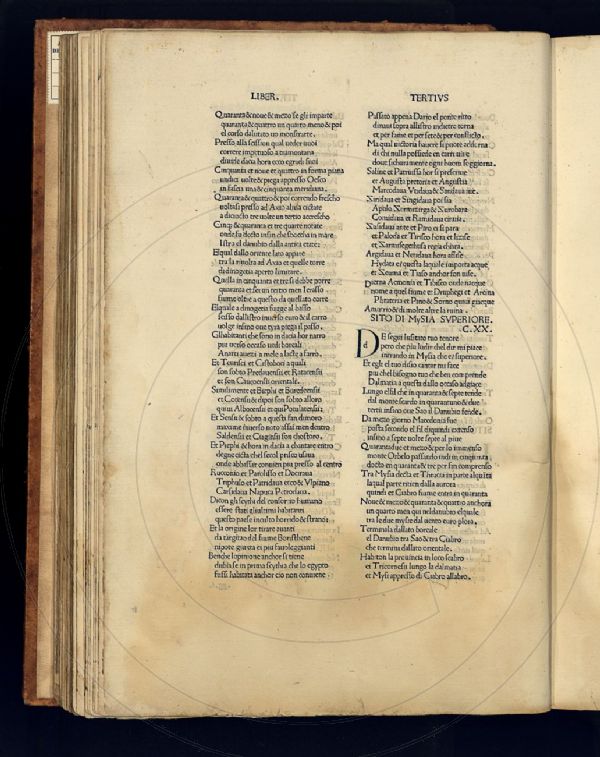 LIBER.
Quaranta & noue & mezo se gli imparte
quaranta & quattro un quarto meno & poi
el corso dalistro uo monstrarte.
Presso alla session qual ueder uuoi
correre impetuoso a tramontana
diuide dacia hora ecco egrudi suoi
Cinquanta et noue et quattro in forma piana
indica uolte & piega appresso Oesco
infassa una & cinquanta meridiana.
Quaranta & quattro & poi correndo frescho
uoltasi presso ad
a diciocto tre uolte un tertio accrescho
Cinq & quaranta et tre quarte notate
onde fa docto insin che focetha in mare
Istro el danubio dalla antica etate:
El qual dallo oriente fato appare
tra la riuolta ad Axio et quelle torre
dadinogetia aperto limitare.
Questa in cinquanta et tre si debbe porre
quaranta et sei un tertio men Ierasso
fiume oltre a questo da questato corre
Elquale a dinogetia fugge al basso
sesso dallistro inuerso euro & il carro
uolge insino oue tyra piega il passo.
Glhabitanti che sono in dacia hor narro
piu uerso occaso uerdi boreali
Anarti auezi a mele a lacte a farro.
Et Teurisci et Cistoboci a quali
son sotto Predauensii et Ratacensii
et son Caucoensii orientale.
Similmente et Biephi et Buredensii
et Cotensii & dipoi son sobto alloro
quiui Albocensii et qui Potulatensii;
Et Sensii & sobto a questi fan dimoro
maxime inuerso noto assai men dentro
Saldensii et Ciagisii son chostoro.
Et Piephi & hora in dacia a chantare entro
degne cictà chel secol prisco usaua
onde abbasse conuien piu presso al centro
Ruconio et Parolisso et Docraua
Triphulo et Patridaua erco & Vlpiano
Carsidaua Napuca Petrodaua.
Dicon gli scythi del consortio humano
essere stati gli altimi habitanti
questo paese inculto horrido & strano;
Et la origine lor tirare auanti
da targitao del fiume Boristhene
nipote giurata ei piu fauoleggianti
Benche lopinione anchor si tiene
dubiosa se in prima scythia che lo egypto
fussi habitata anchor ciò non conuiene
TERTIVS
Passato appena Dario el ponte ritto
dinaui sopra allistro indietro torna
et per fame et per sete & per conflicto.
Ma qual uictoria hauere si puote adciorna
di chi nulla possiede en carri uiue
doue sicuramente ogni huom soggiorna.
Saline et Patruissa hor si prescriue
et Augusta pretoria et Angustia
Marcodaua Vtidaua & Sandaua iue.
Ziridaua et Singidaua poi sia
Apula Zermirzirga & Zurobara
Comidaua et Ramidaua cittùs.
Zusidaua ante et Piro et si para
et Paloda et Tirisco hora et licisse
et Zarmisogethusa regia chiara.
Argidaua et Netindaua hora affisse
Hydata et questa laquale importa acque
et Zeuma et Tiaso anchor son uisse.
Dierna Acmonia et Tibisco onde nacque
nome a quel fiume et Druphegi et Arcina
Phrateria et Pino & Sorno quini giacque
Amutrio & di molte altre la ruina.
SITO DI MYSIA SVPERIORE.
C. XX.
DE segui lusitato tuo tenore
pero che piu ludir chel dir mi piace
intrando in Mysia che e superiore.
Et egli el tuo disio cantar mi face
piu chel bisogno tuo che ben comprende
Dalmatia a questa dallo occaso adgiace
Lungo el fil che in quaranta & septe tende
dal monte scardo in quarantuno & due
tertii insino oue Sao il Danubio fende.
Da mezo giorno Macedonia fue
posta secondo el fil diquindi extenso
insino a septe uolte septe al piue
Quarantadue et mezo & per lo immenso
monte Orbelo passa di ordini in cinquanta
docto en quaranta & tre per fin comprenso
Tra Mysia decta et Thracia in parte alquanta
la qual parte uien dalla aurora
quindi et Ciabro fiume entra in quaranta
Noue & mezo & quaranta & quattro anchora
un quarto men qui nel danubio el quale
tra le due mysie dal uiento euro plora.
Terminala dallato boreale
el Danubio tra Sao & tra Ciabro
che termina dallato orientale.
Habiton la prouincia in loco scabro
ei Tricornesii lungo la dalmatia
et Mysi appresso di Ciabro al labro.